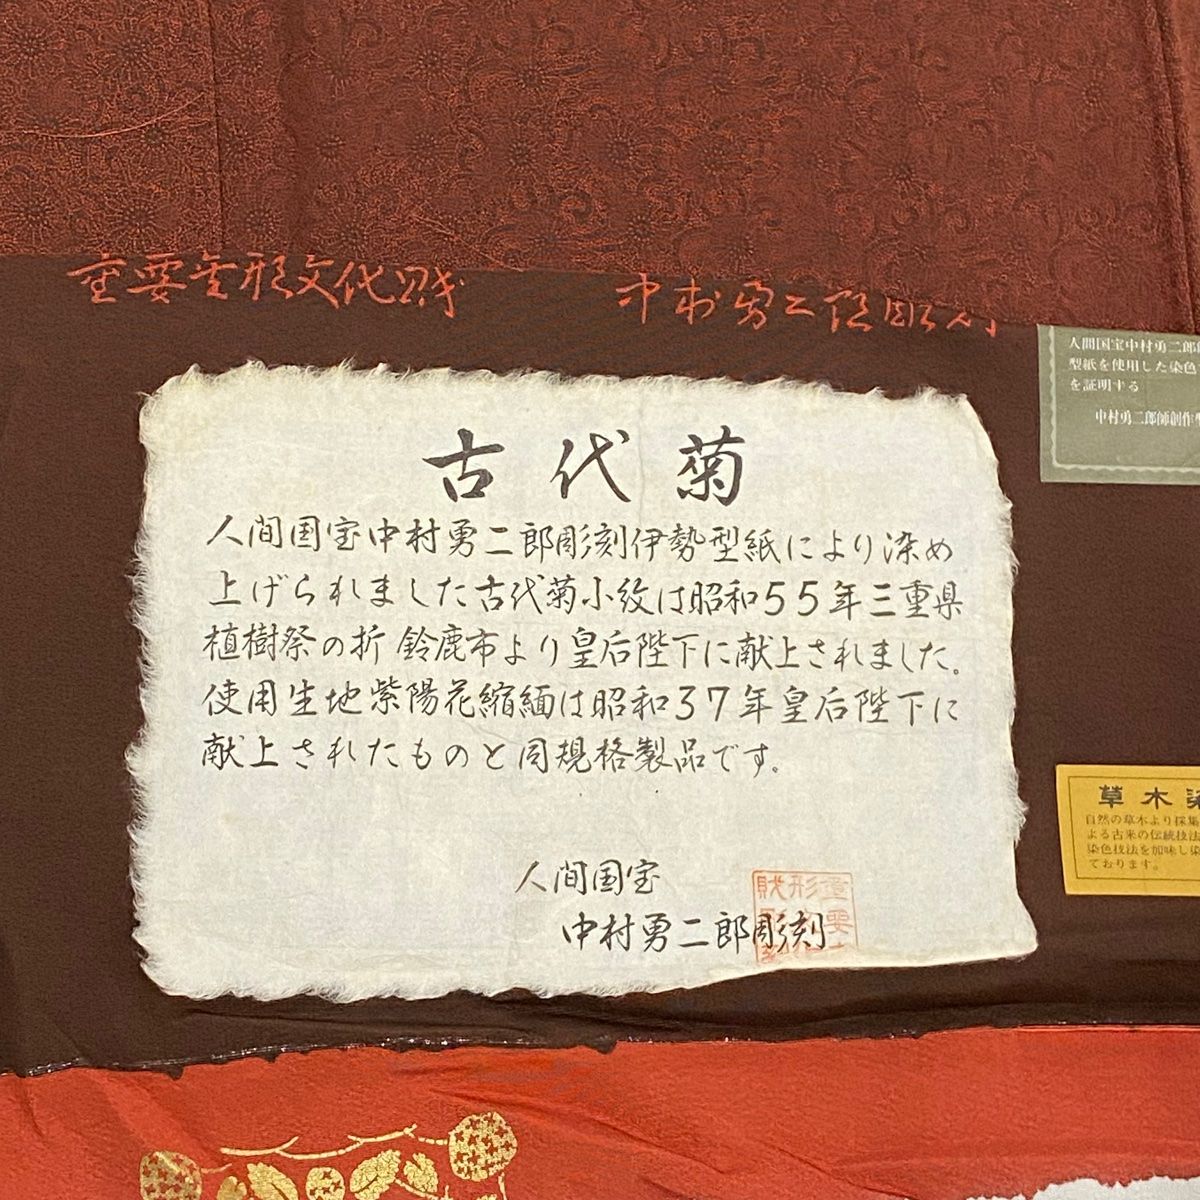 重要無形文化財
中村勇二郎彫刻
人間国宝中村勇二郎
型紙を使用した染色
を証明する
中村勇二郎師創作型
古代菊
人間国宝中村勇二郎彫刻伊勢型紙により染め
上げられました古代菊小紋は昭和55年三重県
植樹祭の折 鈴鹿市より皇后陛下に献上されました。
使用生地紫陽花縮緬は昭和37年皇后陛下に
献上されたものと同規格製品です。
草木染
自然の草木より採集
よる古来の伝統技法
染色技法を加味し染
ております。
人間国宝
中村勇二郎彫刻